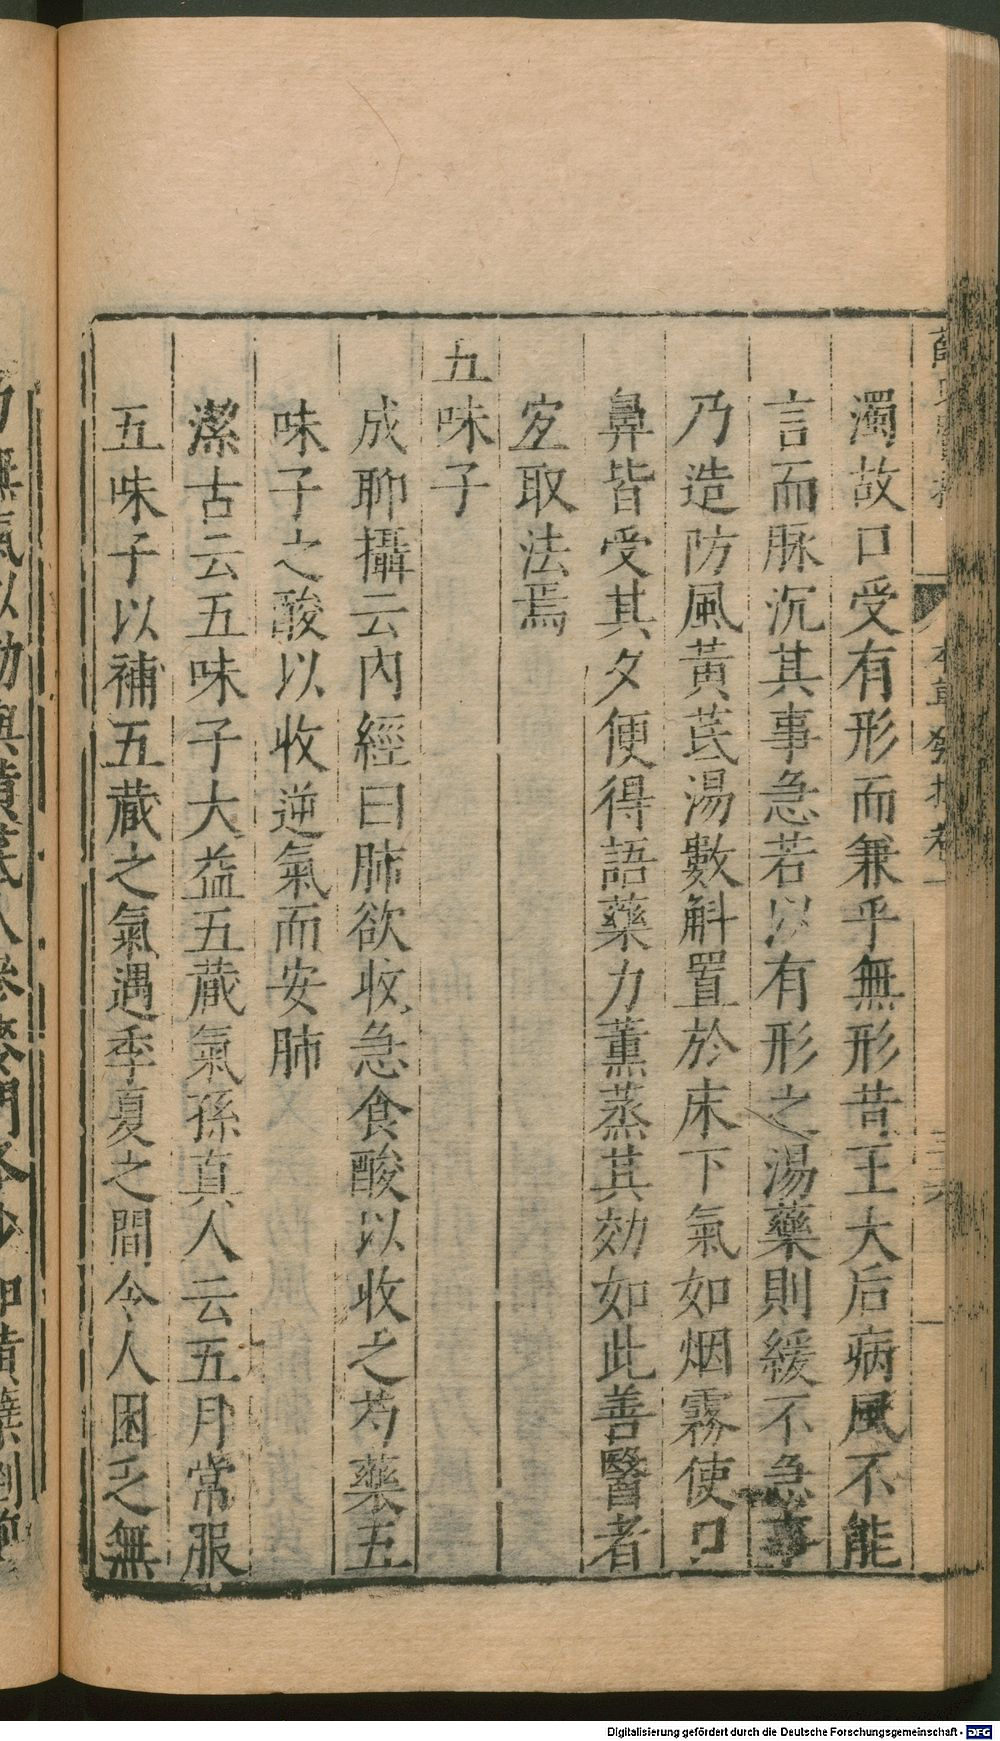 濁故口受有形而兼乎無形昔王大后病風不能
言而脉沉其事急若以有形之湯藥則緩不急事
乃造防風黃芪湯數斛置於床下氣如烟霧使口
鼻皆受其夕便得語藥力薰蒸其効如此善醫者
宐取法焉
五味子
成聊攝云內經曰肺欲收急食酸以收之芍藥五
味子之酸以收逆氣而安肺
潔古云五味子大益五藏氣孫真人云五月常服
五味子以補五藏之氣遇季夏之間令人困乏無
Digitalisierung gefördert durch die Deutsche Forschungsgemeinschaft - DFG